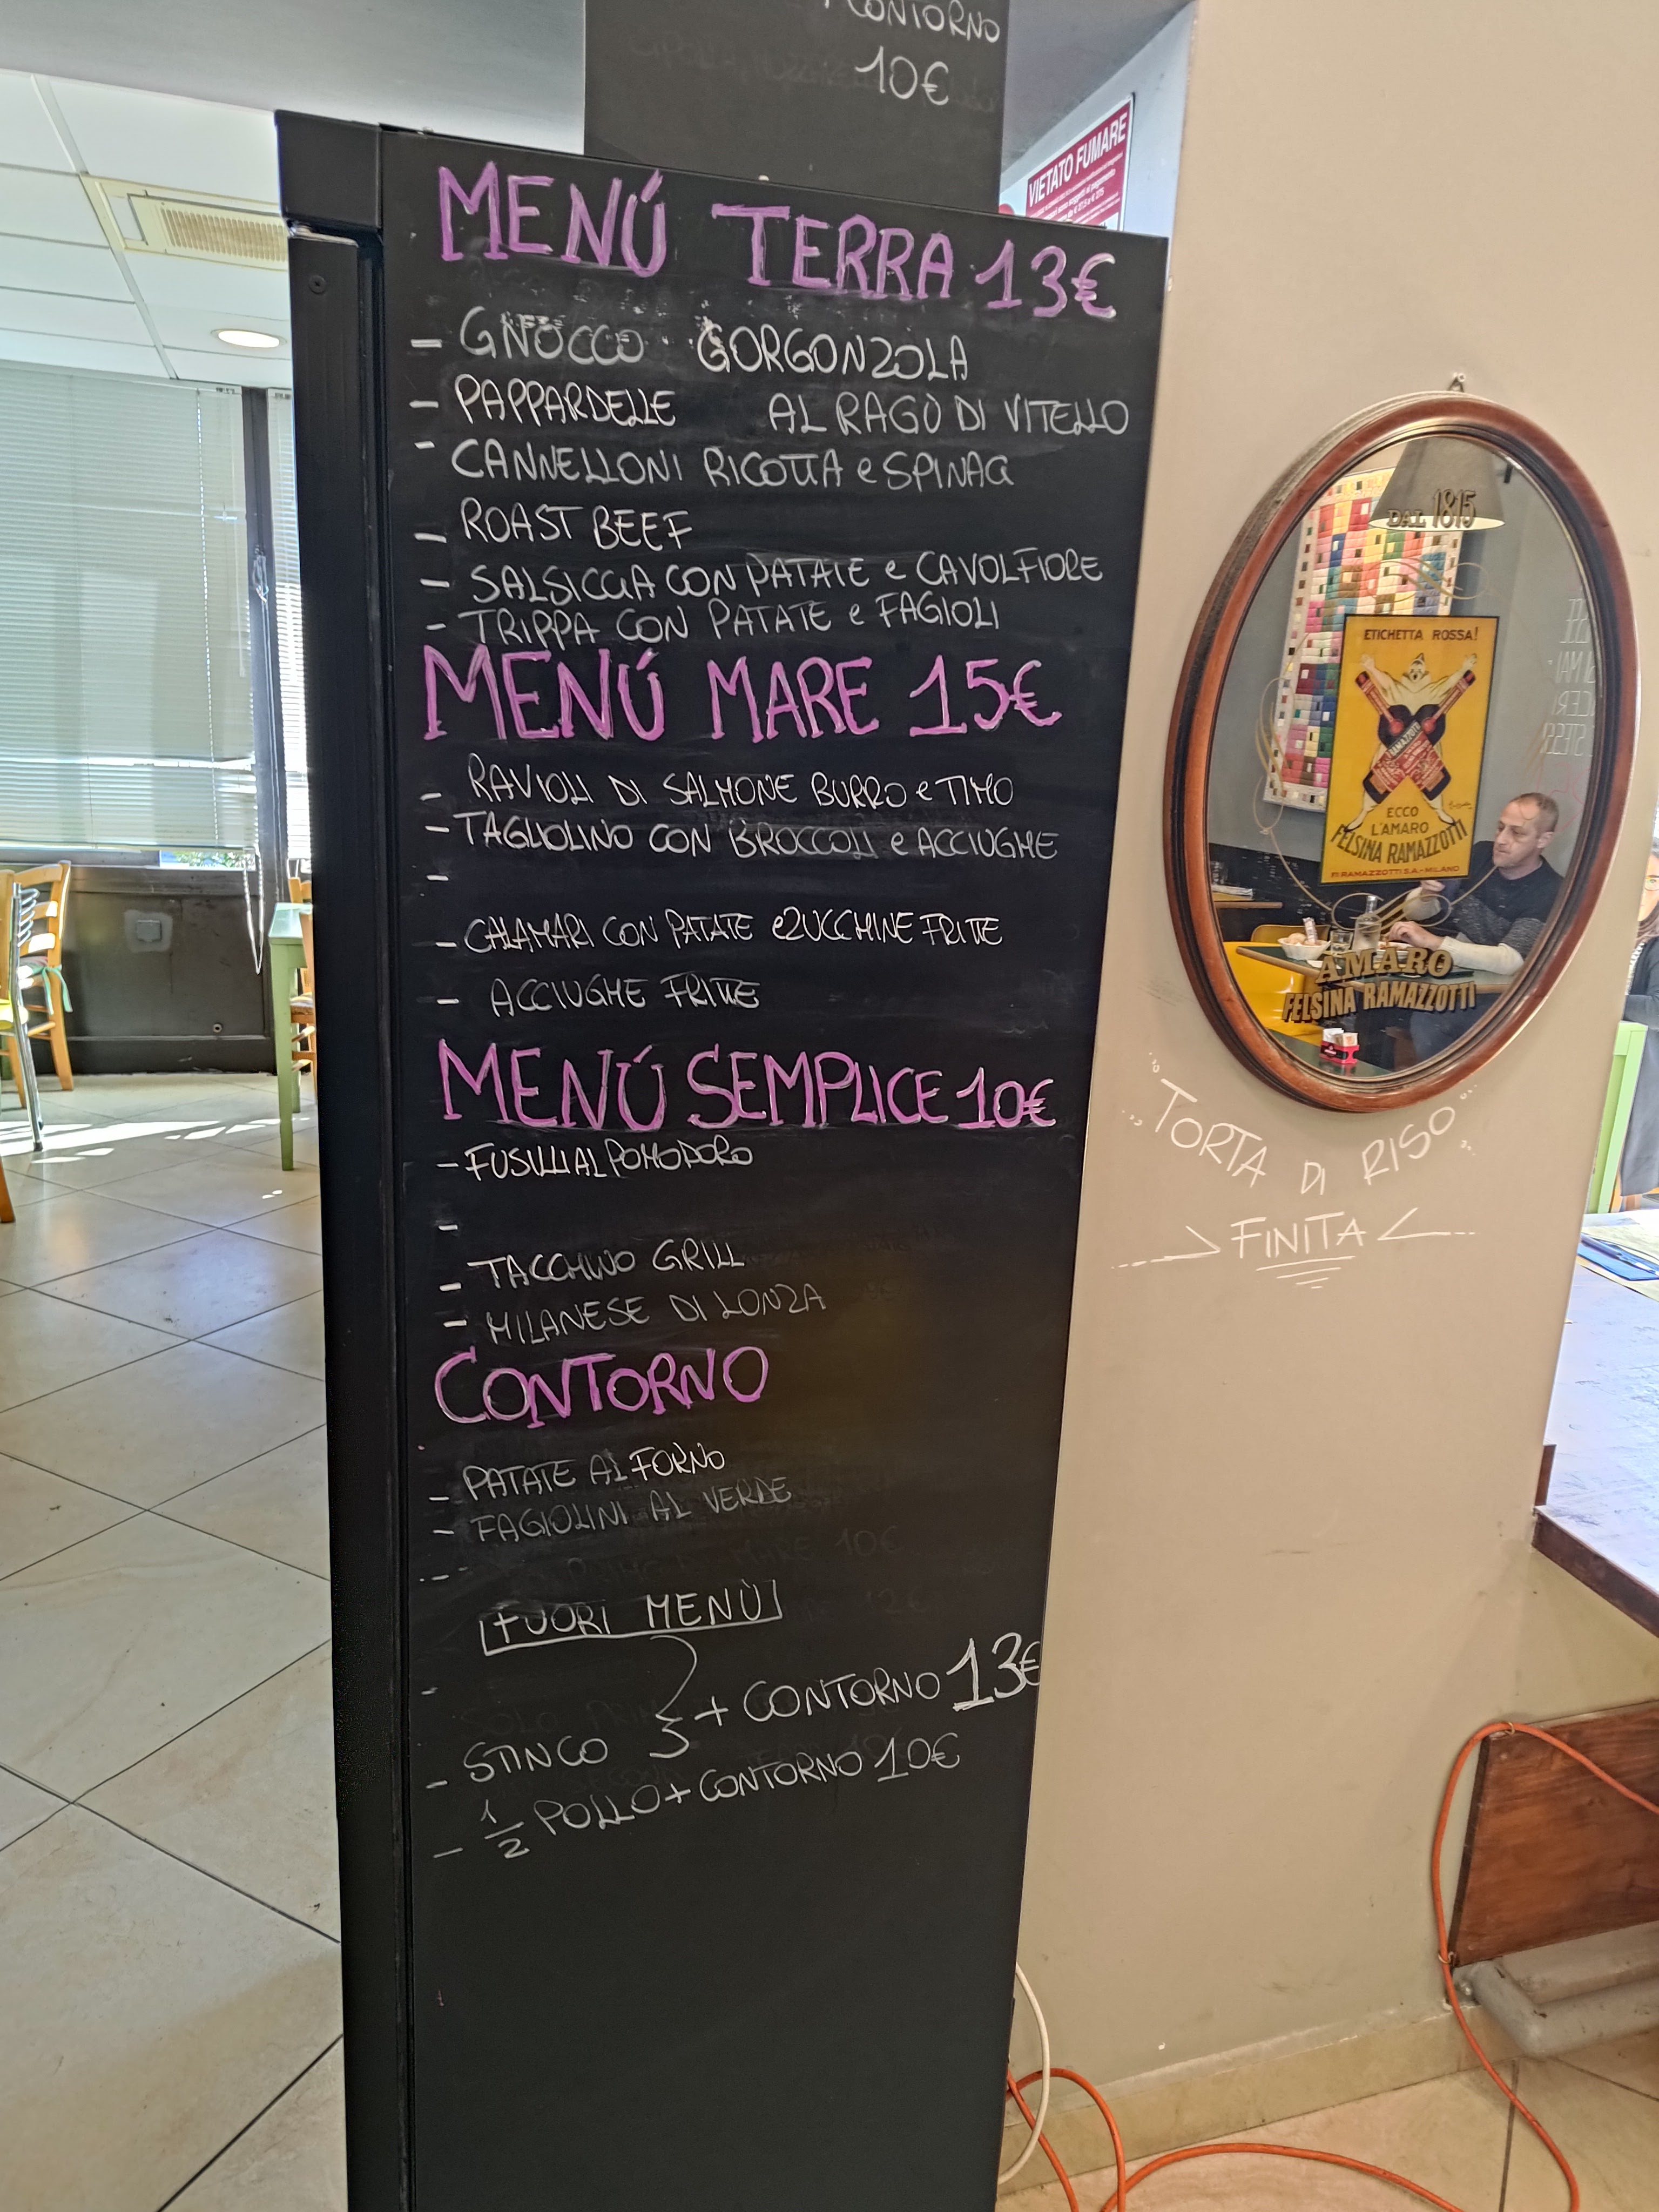 CONTORNO
10€
VIETATO FUMARE
MENÚ TERRA 13€
- GNOCCO GORGONZOLA
- PAPPARDELLE AL RAGÙ DI VITELLO
- CANNELLONI RICOTTA e SPINACI
- ROAST BEEF
- SALSICCIA CON PATATE e CAVOLFIORE
- TRIPPA CON PATATE e FAGIOLI
MENÚ MARE 15€
- RAVIOLI DI SALMONE BURRO e TIMO
- TAGLIOLINO CON BROCCOLI e ACCIUGHE
-
- CALAMARI CON PATATE e ZUCCHINE FRITTE
- ACCIUGHE FRITTE
MENÚ SEMPLICE 10€
- FUSILLI AL POMODORO
-
- TACCHINO GRILL
- MILANESE DI LONZA
CONTORNO
- PATATE AL FORNO
- FAGIOLINI AL VERDE
-
FUORI MENÙ
-
- STINCO } + CONTORNO 13€
- 1/2 POLLO + CONTORNO 10€
DAL 1815
ETICHETTA ROSSA!
RAMAZZOTTI
ECCO
L'AMARO
FELSINA RAMAZZOTTI
F.LLI RAMAZZOTTI S.A. - MILANO
AMARO
FELSINA RAMAZZOTTI
TORTA DI RISO
FINITA